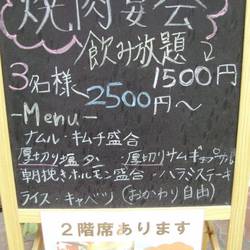 焼肉宴会
飲み放題
1500円
3名様
2500円~
-Menu-
ナムル・キムチ盛合
厚切り塩タン・厚切りサムギョプサル
朝挽きホルモン盛合・ハラミステーキ
ライス・キャベツ(おかわり自由)
2階席あります